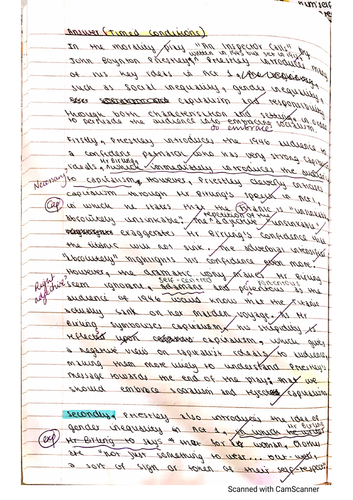 himself
Answer (Timed Conditions)
In the morality play "An Inspector Calls"
written in 1945 but set in 1912
John Boynton Priestley, Priestley introduces many
of his key ideas in Act 1,
such as social inequality, gender inequality
capitalism and responsibility
through both characterisation and setting, in order
to persuade the audience into embracing socialism.
to embrace
Firstly, Priestley introduces the 1946 audience to
a confident patriarch who has very strong capitalist
Mr Birling
views, which immediately introduces the audience
Necessary?
to capitalism. However, Priestley cleverly criticises
capitalism through Mr Birling's speech in Act 1,
Cap
in which he states that the Titanic is "unsinkable
absolutely unsinkable". The adjective "unsinkable"
repetition of the
exaggerates Mr Birling's confidence that
the titanic will not sink. The adverbial intensifier
"absolutely" highlights his confidence even more.
However, the dramatic irony makes Mr Birling
Right adjective?
self-centred
seem ignorant, and as the
audience of 1946 would know that the Titanic
actually sank on her maiden voyage. As Mr
Birling symbolises capitalism, his stupidity is
reflected upon capitalism, which gives
a negative view on capitalist ideals to audience
making them more likely to understand Priestley's
message towards the end of the play: that we
should embrace socialism and reject capitalism
Secondly, Priestley also introduces the idea of
gender inequality in Act 1,
in which he uses
Mr Birling
exp
Mr Birling to says "a way for women, clothes
are "not just something to wear... but well,
a sort of sign or token of their self-respect
Scanned with CamScanner